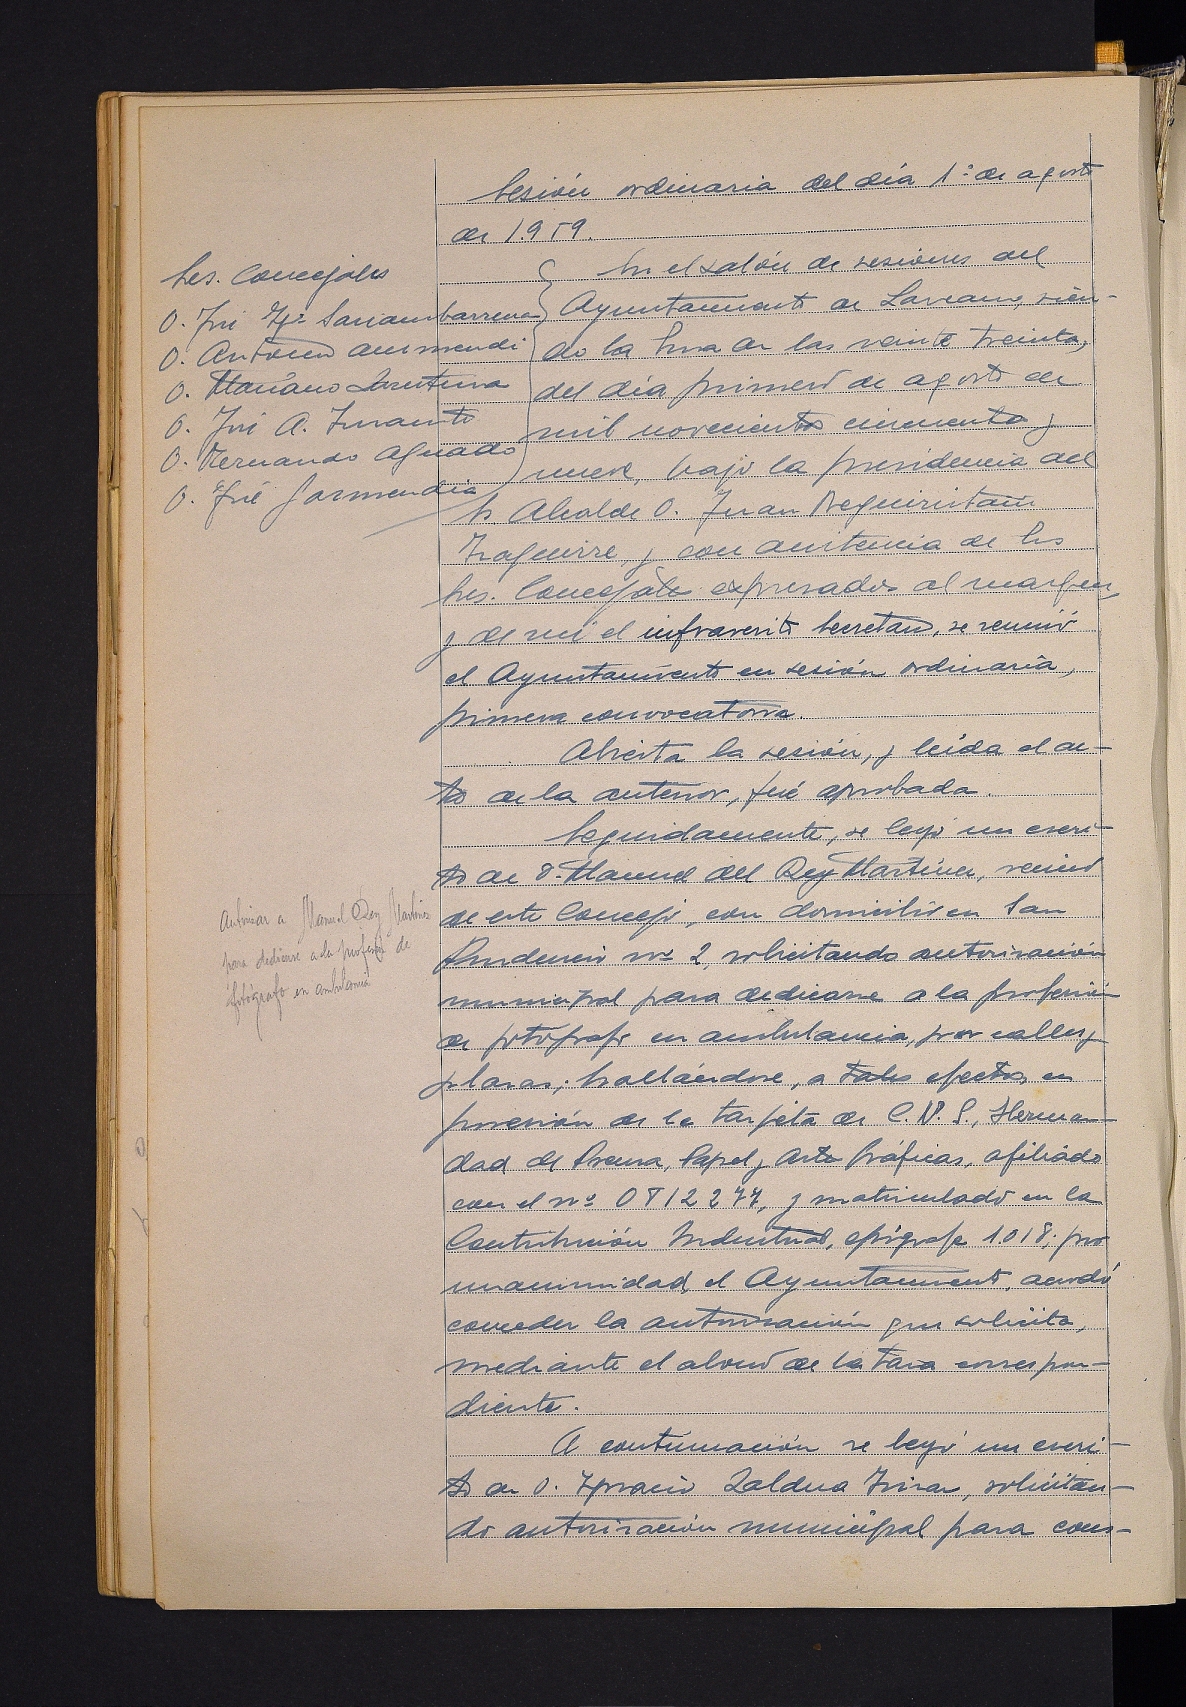 Sesión ordinaria del día 1º de agosto
de 1.959.
Sres. Concejales
D. José Ig.º Sariambarrena
D. Antonio Aurmendi
D. Mariano
D. José A. Inxausti
D. Fernando Aguado
D. José Garmendia
En el salón de sesiones del
Ayuntamiento de Lazcano, sien-
do la hora de las veinte treinta,
del día primero de agosto de
mil novecientos cincuenta y
nueve, bajo la presidencia del
Sr. Alcalde D. Juan Beguiristain
Izaguirre, y con asistencia de los
Sres. Concejales expresados al margen,
y de mí el infraescrito Secretario, se reunió
el Ayuntamiento en sesión ordinaria,
primera convocatoria.
Abierta la sesión, y leída el ac-
ta de la anterior, fué aprobada.
Seguidamente, se leyó un escri-
to de D. Manuel del Rey Martínez, vecino
de este Concejo, con domicilio en San
Prudencio nº 2, solicitando autorización
municipal para dedicarse a la profesión
de fotógrafo en ambulancia, por calles y
plazas; hallándose, a tales efectos, en
posesión de la tarjeta de C.N.S., Herman-
dad de Prensa, Papel y Artes Gráficas, afiliado
con el nº 0812277, y matriculado en la
Contribución Industrial, epígrafe 1.018; por
unanimidad, el Ayuntamiento, acordó
conceder la autorización que solicita,
mediante el abono de la tasa correspon-
diente.
Autorizar a Manuel Rey Martínez
para dedicarse a la profesión de
fotógrafo en ambulancia
A continuación se leyó un escri-
to de D. Ignacio Zaldua, solicitan-
do autorización municipal para cons-